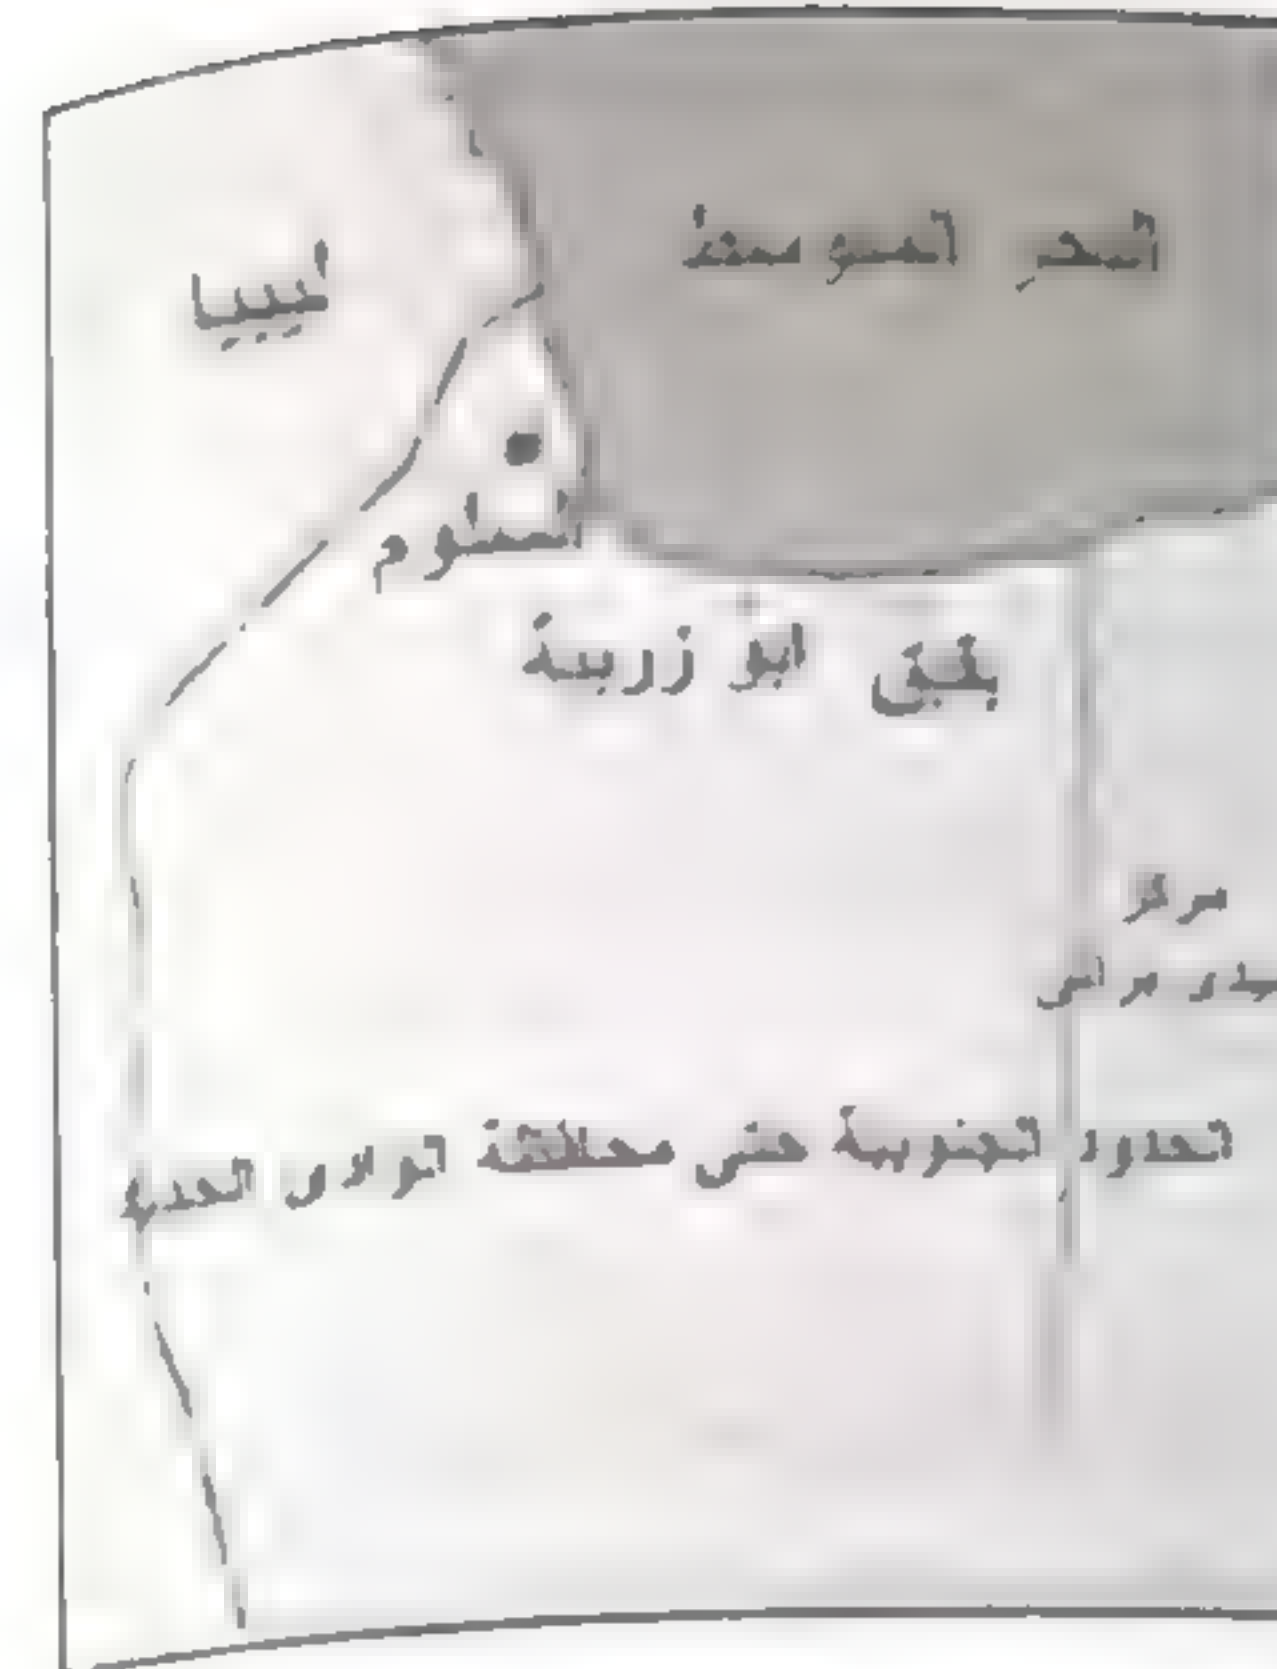 البحر المتوسط
ليبيا
السلوم
بقبق ابو زريبة
مركز
سيدى برانى
الحدود الجنوبية حتى محافظة الوادى الجديد